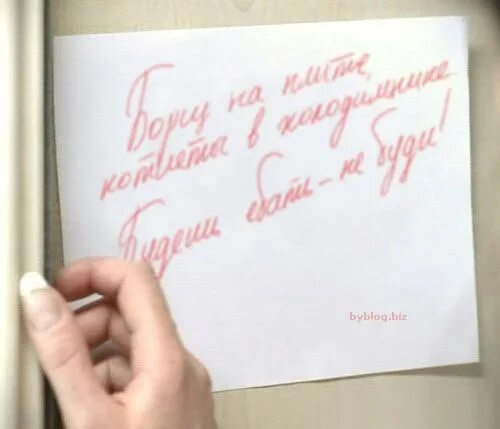 Борщ на плите,
котлеты в холодильнике.
Будешь ебать – не буди!
byblog.biz